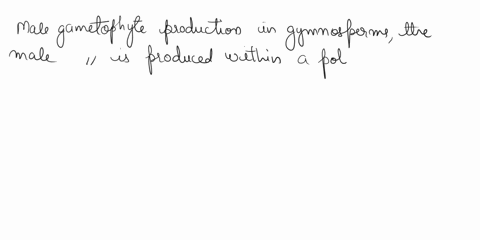 Male gametophyte production in gymnosperms, the
male 〃 is produced within a pol